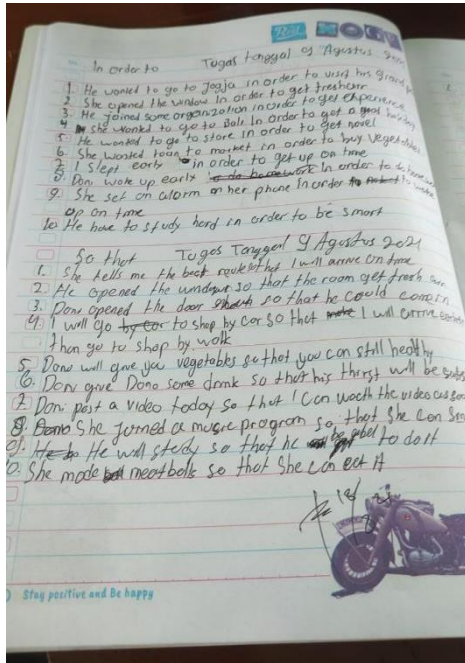 In order to Tugas tanggal 9 Agustus
1. He wanted to go to Jogja in order to visit his
2. She opened the window in order to get fresh air
3. He joined some organization in order to get experience
4. she wanted to go to Bale in order to get a good holiday
5. He wanted to go to store in order to get novel
6. She wanted to market in order to buy vegetables
7. I slept early in order to get up on time
8. Doni woke up early in order to
9. She set an alarm on her phone in order to
up on time
10. He have to study hard in order to be smart
So that Tugas Tanggal 9 Agustus 2021
1. She tells me the best route so that I will arrive on time
2. He opened the window so that the room get fresh
3. Doni opened the door so that he could
4. I will go to shop by car so that I will arrive
than go to shop by walk
5. Dono will give you vegetables so that you can still healthy
6. Doni give Dono some drink so that his thirst will be
7. Doni post a video today so that I can
8. She joined a music program so that she can
9. He will study so that he to do it
10. She made meatballs so that she can eat it
Stay positive and Be happy